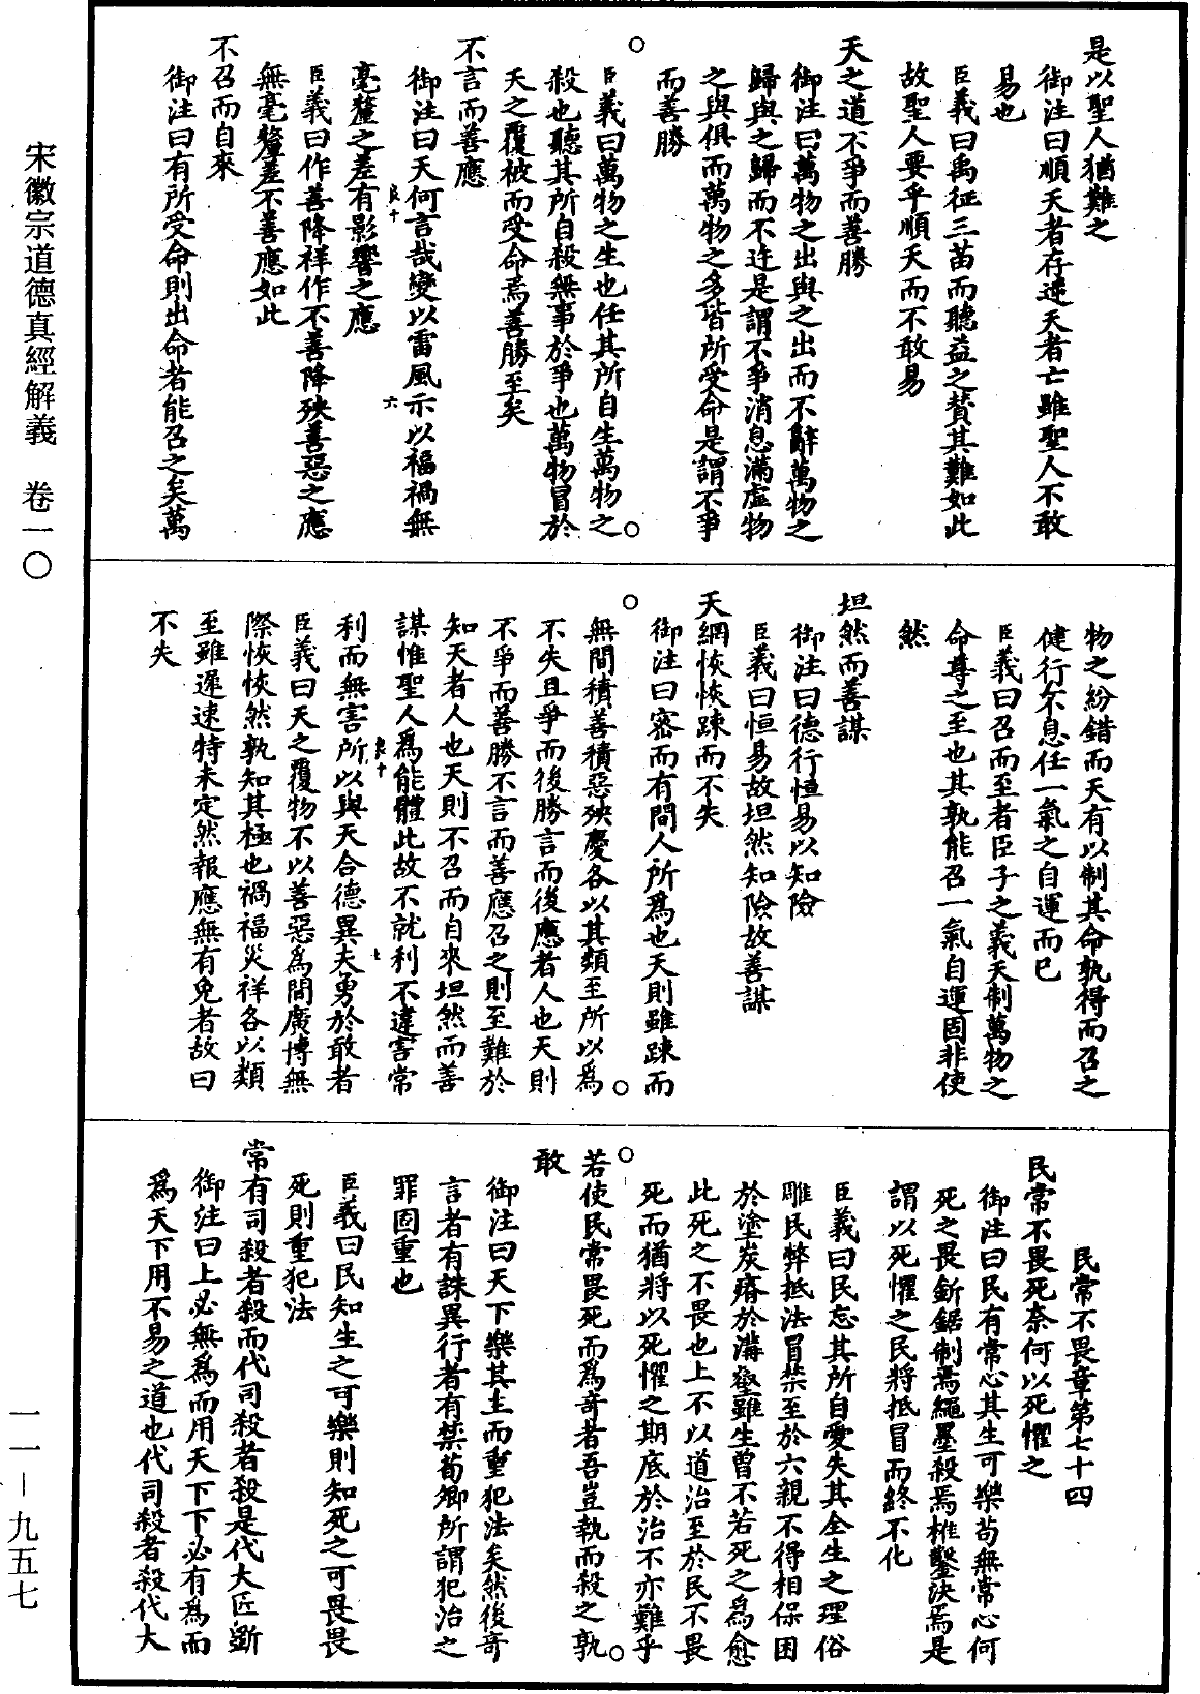 宋徽宗道德真經解義　卷一〇
一一－九五七
是以聖人猶難之
御注曰順天者存逆天者亡雖聖人不敢
易也
臣義曰禹征三苗而聽益之贊其難如此
故聖人要乎順天而不敢易
天之道不爭而善勝
御注曰萬物之出與之出而不辭萬物之
歸與之歸而不迕是謂不爭消息滿虛物
之與俱而萬物之多皆所受命是謂不爭
而善勝
臣義曰萬物之生也任其所自生萬物之
殺也聽其所自殺無事於爭也萬物冒於
天之覆被而受命焉善勝至矣
不言而善應
御注曰天何言哉變以雷風示以福禍無
毫釐之差有影響之應
臣義曰作善降祥作不善降殃善惡之應
無毫釐差不善應如此
不召而自來
御注曰有所受命則出命者能召之矣萬
物之紛錯而天有以制其命孰得而召之
健行不息任一氣之自運而已
臣義曰召而至者臣子之義天制萬物之
命尊之至也其孰能召一氣自運固非使
然
坦然而善謀
御注曰德行恒易以知險
臣義曰恒易故坦然知險故善謀
天網恢恢踈而不失
御注曰密而有間人所爲也天則雖踈而
無間積善積惡殃慶各以其類至所以爲
不失且爭而後勝言而後應者人也天則
不爭而善勝不言而善應召之則至難於
知天者人也天則不召而自來坦然而善
謀惟聖人爲能體此故不就利不違害常
利而無害所以與天合德異夫勇於敢者
臣義曰天之覆物不以善惡爲間廣博無
際恢恢然孰知其極也禍福災祥各以類
至雖遲速特未定然報應無有免者故曰
不失
民常不畏章第七十四
民常不畏死奈何以死懼之
御注曰民有常心其生可樂苟無常心何
死之畏釿鋸制焉繩墨殺焉椎鑿決焉是
謂以死懼之民將抵冒而終不化
臣義曰民忘其所自愛失其全生之理俗
雕民弊抵法冒禁至於六親不得相保困
於塗炭瘠於溝壑雖生曾不若死之爲愈
此死之不畏也上不以道治至於民不畏
死而猶將以死懼之期底於治不亦難乎
若使民常畏死而爲奇者吾豈執而殺之孰
敢
御注曰天下樂其生而重犯法矣然後奇
言者有誅異行者有禁荀卿所謂犯治之
罪固重也
臣義曰民知生之可樂則知死之可畏畏
死則重犯法
常有司殺者殺而代司殺者殺是代大匠斲
御注曰上必無爲而用天下下必有爲而
爲天下用不易之道也代司殺者殺代大